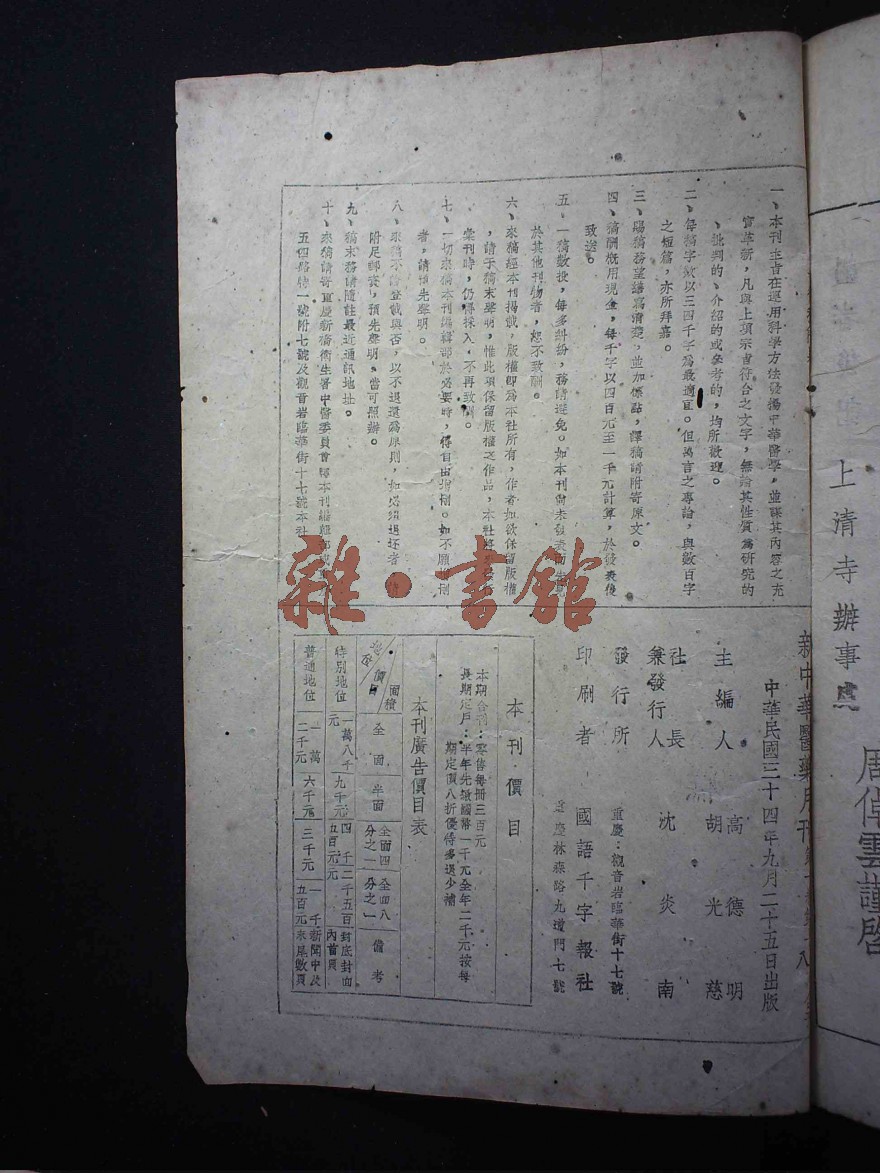 一、本刊主旨在運用科學方法發揚中華醫學，並謀其內容之充
實革新，凡與上項宗旨符合之文字，無論其性質為研究的
、批判的、介紹的或參考的，均所歡迎。
二、每稿字數以三四千字為最適宜。但萬言之專論，與數百字
之短篇，亦所拜嘉。
三、賜稿務望繕寫清楚，並加標點，譯稿請附寄原文。
四、稿酬概用現金，每千字以四百元至一千元計算，於發表後
致送。
五、一稿數投，每多糾紛，務請避免。如本刊尚未發表而先
於其他刊物者，恕不致酬。
六、來稿經本刊揭載，版權即為本社所有，作者如欲保留版權
，請于稿末聲明，惟此項保留版權之作品，本社
彙刊時，仍得採入，不再致酬。
七、一切來稿本刊編輯部於必要時，得自由增刪。如不願增刪
者，請預先聲明。
八、來稿不論登載與否，以不退還為原則，如必須退還者，
附足郵票，預先聲明。當可照辦。
九、稿末務請隨註最近通訊地址。
十、來稿請寄重慶新橋衛生署中醫委員會轉本刊編輯部或
五四路特一號附七號及觀音岩臨華街十七號本社
新中華醫藥月刊
中華民國三十四年九月二十五日出版
主編人 高德明
胡光慈
社長
兼發行人 沈炎南
發行所 重慶：觀音岩臨華街十七號
印刷者 國語千字報社
重慶林森路九道門七號
本刊價目
本期合刊：零售每冊三百元
長期定戶：半年先繳國幣一千元全年二千元按每
期定價八折優待多退少補
本刊廣告價目表
面積 價目 地位 全面 半面 全面四分之一 全面八分之一 備考
特別地位 一萬八千元 九千元 四千五百元 二千五百元 封底封面內首頁
普通地位 一萬二千元 六千元 三千元 一千五百元 新聞中及末尾數頁
上清寺辦事處
周倬雲謹啓
雜·書館